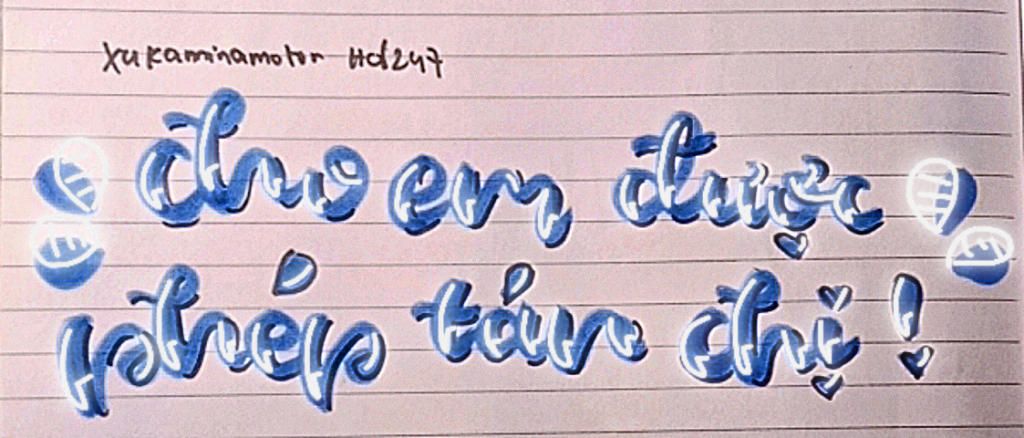 Xukaminamotor Hd247
cho em được
phép tán chị !